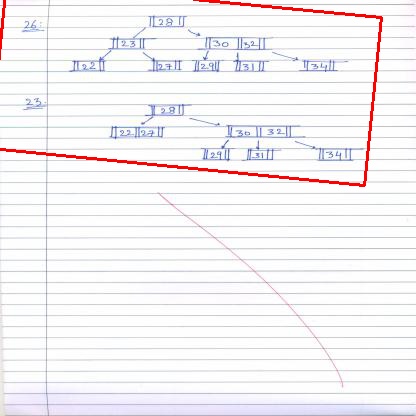 26:
||28||
||23|| ||30||32||
||22|| ||27|| ||29|| ||31|| ||34||
23:
||28||
||22||27|| ||30||32||
||29|| ||31|| ||34||